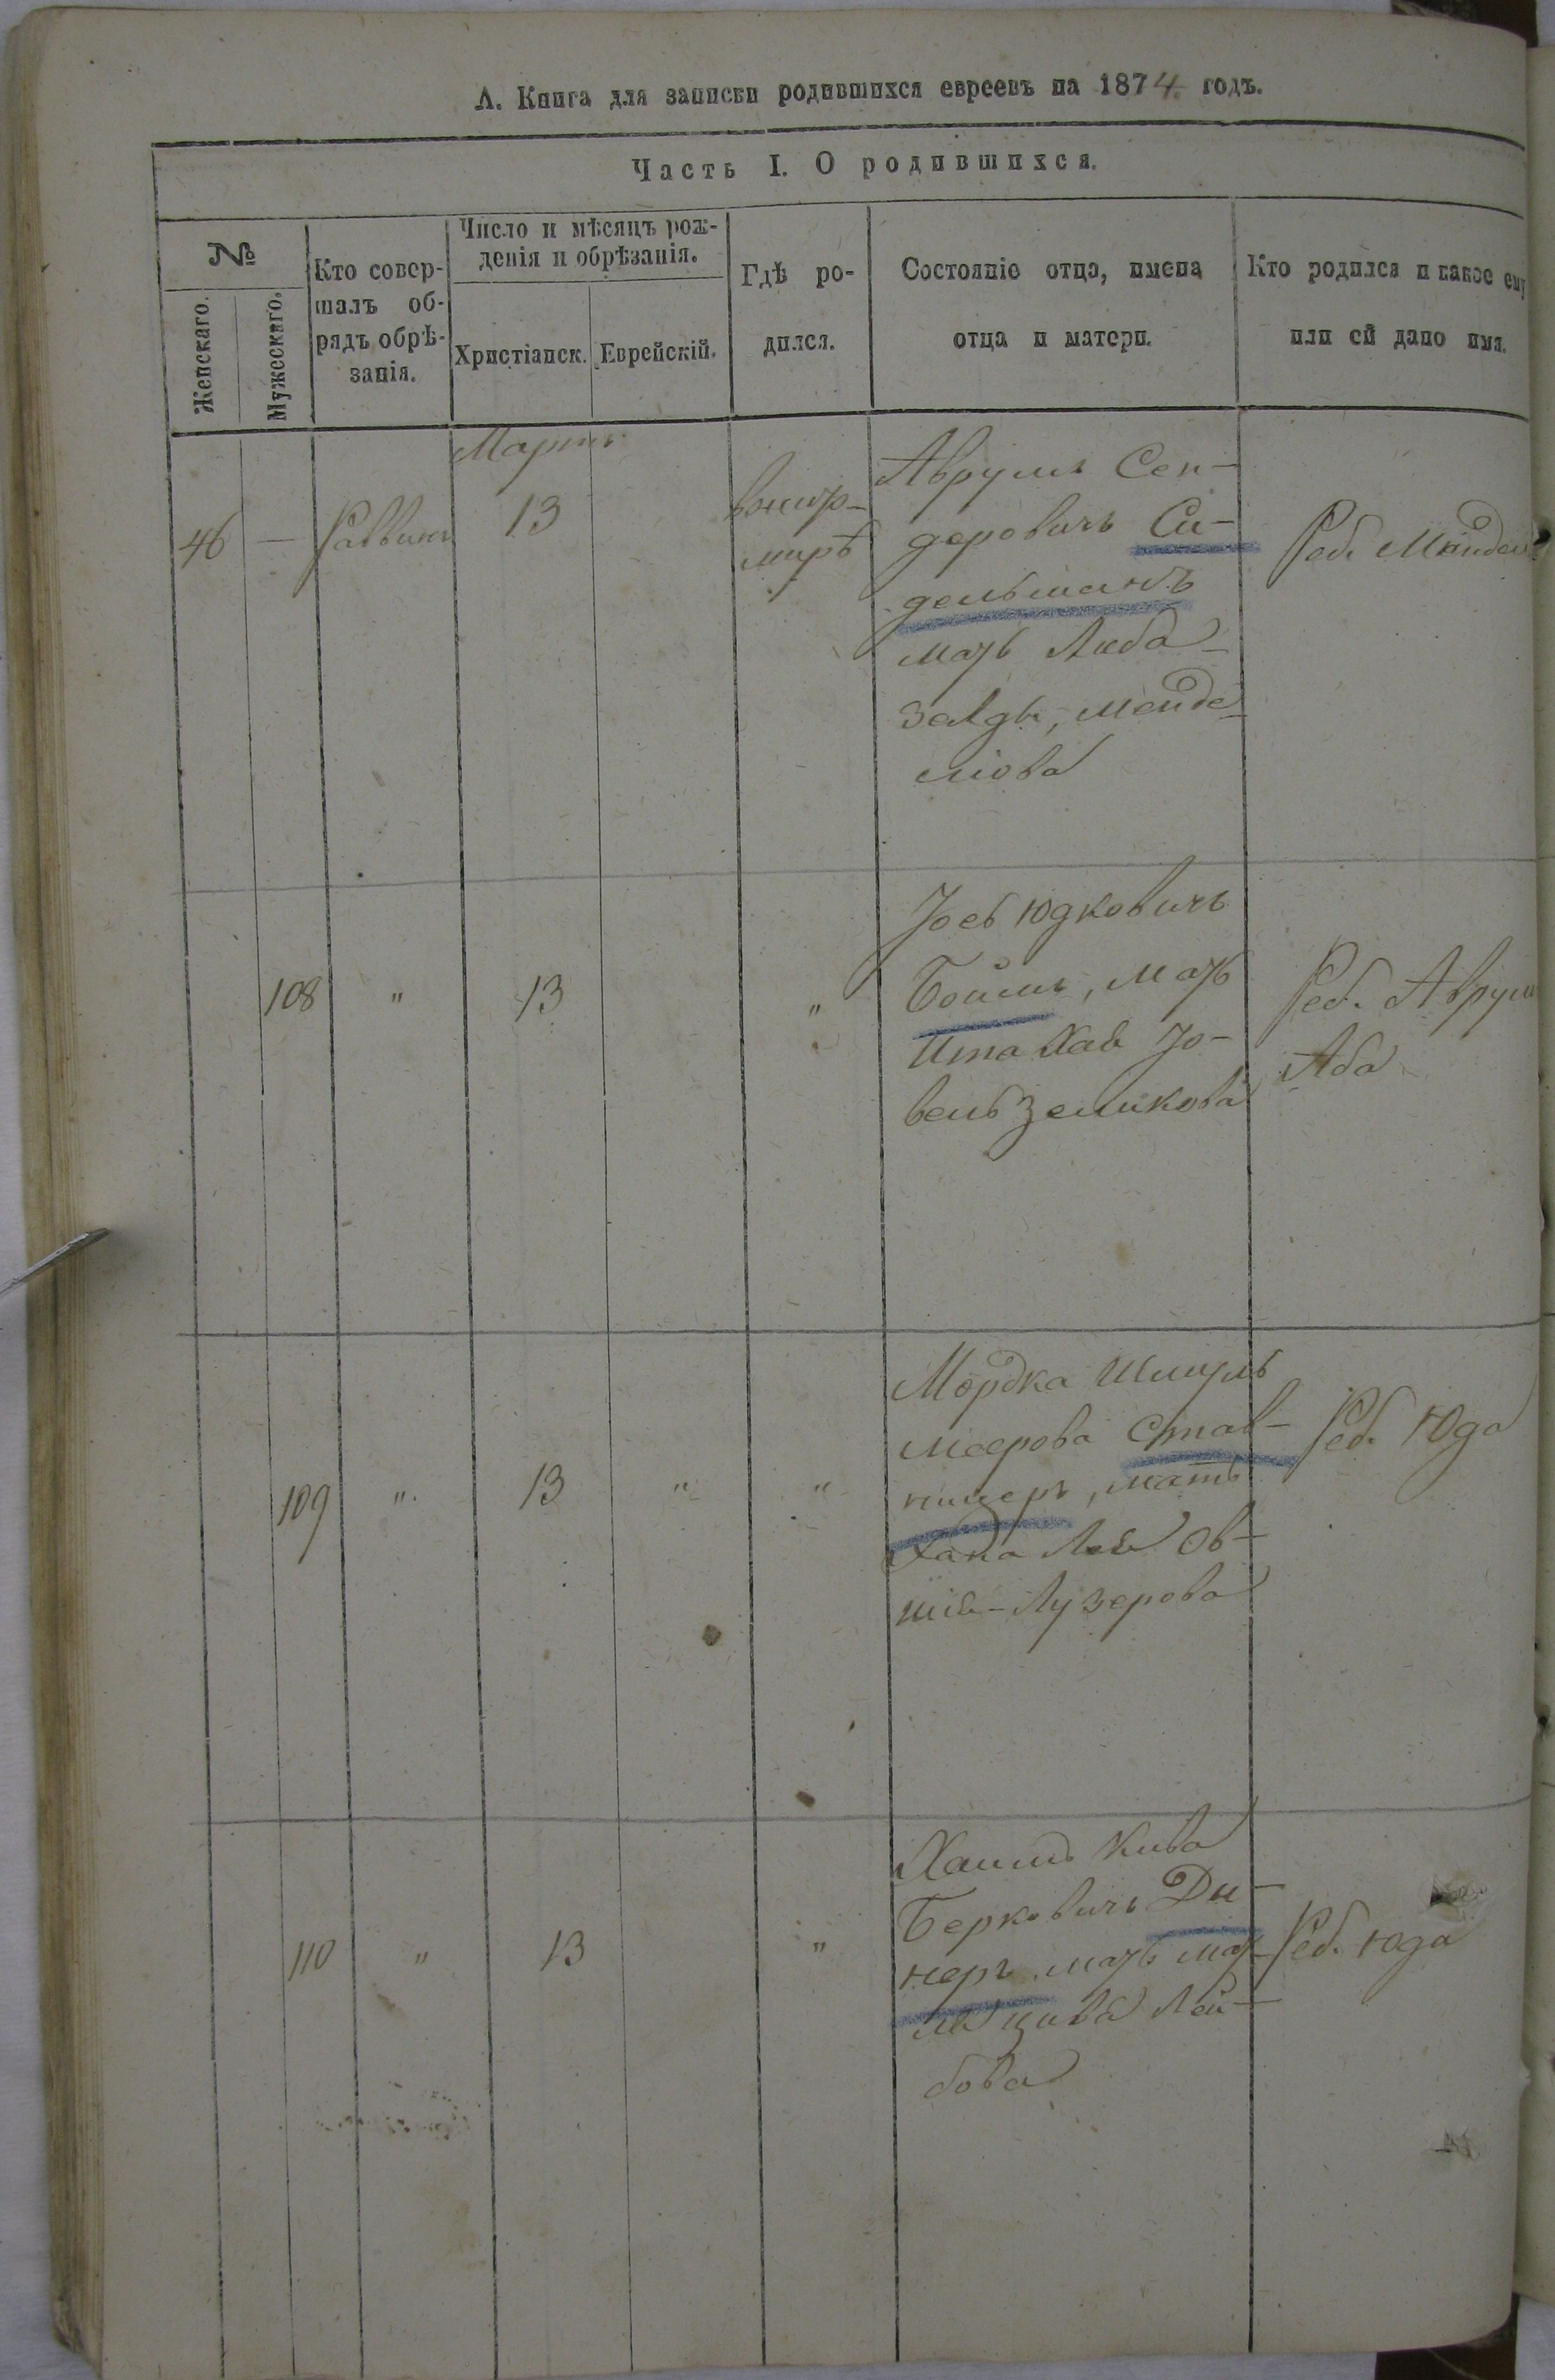 А. Книга для записки родившихся евреевъ на 1874. годъ.
Часть I. О родившихся.
№
Женскаго.
Мужескаго.
Кто совер-
шалъ об-
рядъ обрѣ-
занія.
Число и мѣсяцъ рож-
денія и обрѣзанія.
Христіанск.
Еврейскій.
Гдѣ ро-
дился.
Состояніе отца, имена
отца и матери.
Кто родился и какое ему
или ей дано имя.
Мартъ
46 — Раввинъ 13
вжит-
мирѣ
Аврумъ Сен-
деровичъ Си-
дельманъ
мать Люба
Мендe-
лiова
Реб.
108 " 13 "
Іось Юдковичъ
Боймъ, мать
Ита Хая Іо-
вель Зеликова
Реб. Аврум
Аба
109 " 13 " "
Мордка Шмуль
Меерова Став-
ницеръ, мать
Хана Лея Ов-
шія-Лузерова
Реб. Юда
110 " 13 "
Хаимъ Кива
Берковичъ Ди-
неръ мать Мал-
ка Цива Лей-
бова
Реб. Юда